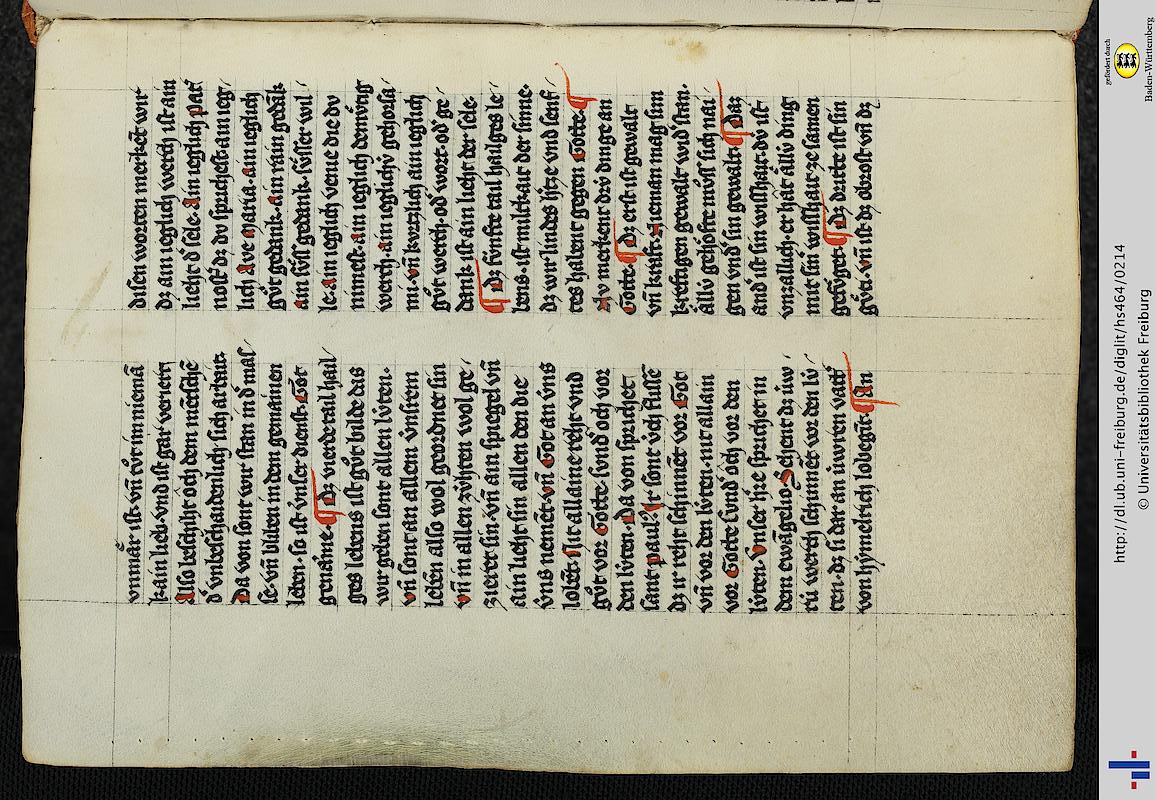 vnmår ist· vñ tůt im niemā
kain lieb· vnd ist gar verwert
Also beschiht öch dem mēschē
d' vnbeschaidenlich sich arbait·
Da von sont wir stan in d' mas/
se· vñ bliben in dem gemainen
leben· so ist vnser dienst· Got
genåme· ¶ Dz vierde tail hail/
ges lebens ist gůt bilde das
wir geben sont allen lv́ten·
vñ sont an allem vnsrem
lebēn also wol geordnet sin
vñ in allen zv́hten wol ge/
zieret sin· vñ ain spiegel vñ
ain lieht sin allen den die
v́ns nemēt· vñ Got an v́ns
lobēt· Nit allaine reht vnd
gůt vor Gotte svnd' och vor
den lv́ten· Da von sprichet
sant paul9 Ir sont v́ch flisse
dz ir reht schinnēt vor Got
vñ vor den lv́ten· nit allain
vor Gotte svnd' och vor den
lv́ten· Vnser h're sprichet in
dem ewāgelio· Sehent dz úw/
rú werch schinnēt vor den lv́/
ten· dz si dar an úwren vatt'
von hymelrich lobegīt· ¶ An
disen worten merkēt wir
dz ain ieglich werch ist ain
lieht d' sele· Ain ieglich Pat'
nost' dz dv sprichest· ain ieg/
lich Ave maria· ain ieglich
gůt gedank· ain rain gedāk
Ain sv́ss gedank· sv́sser wil/
le· Ain ieglich venie die dv
nimest· ain ieglich demv́tig
werch· ain ieglichv́ gehorsā/
mi· vñ kvrzlich ain ieglich
gůt werch· od' wort· od' ge/
dank· ist ain lieht der sele·
¶ Dz fv́nfte tail hailges le/
bens· ist miltkait der sinne·
dz wir lindes h'tze vnd senf/
tes habent gegen Gotte· ¶
Nv merkent drv́ dinge an
Gotte· ¶ Dz erst ist gewalt
vñ kraft· Nieman mag sim
kreftigen gewalt wid'stan·
Állv́ geschöfte mv́ss sich nai/
gen vnd' sin gewalt· ¶ Daz
and' ist sin wishait· dv ist
vnzallich· er hat állv́ ding
mit sin' wisshait ze samen
gefv́get· ¶ Dz dritte ist sin
gv́ti· vñ ist dz obrost vñ dz
http://dl.ub.uni-freiburg.de/diglit/hs464/0214
© Universitätsbibliothek Freiburg
gefördert durch
Baden-Württemberg